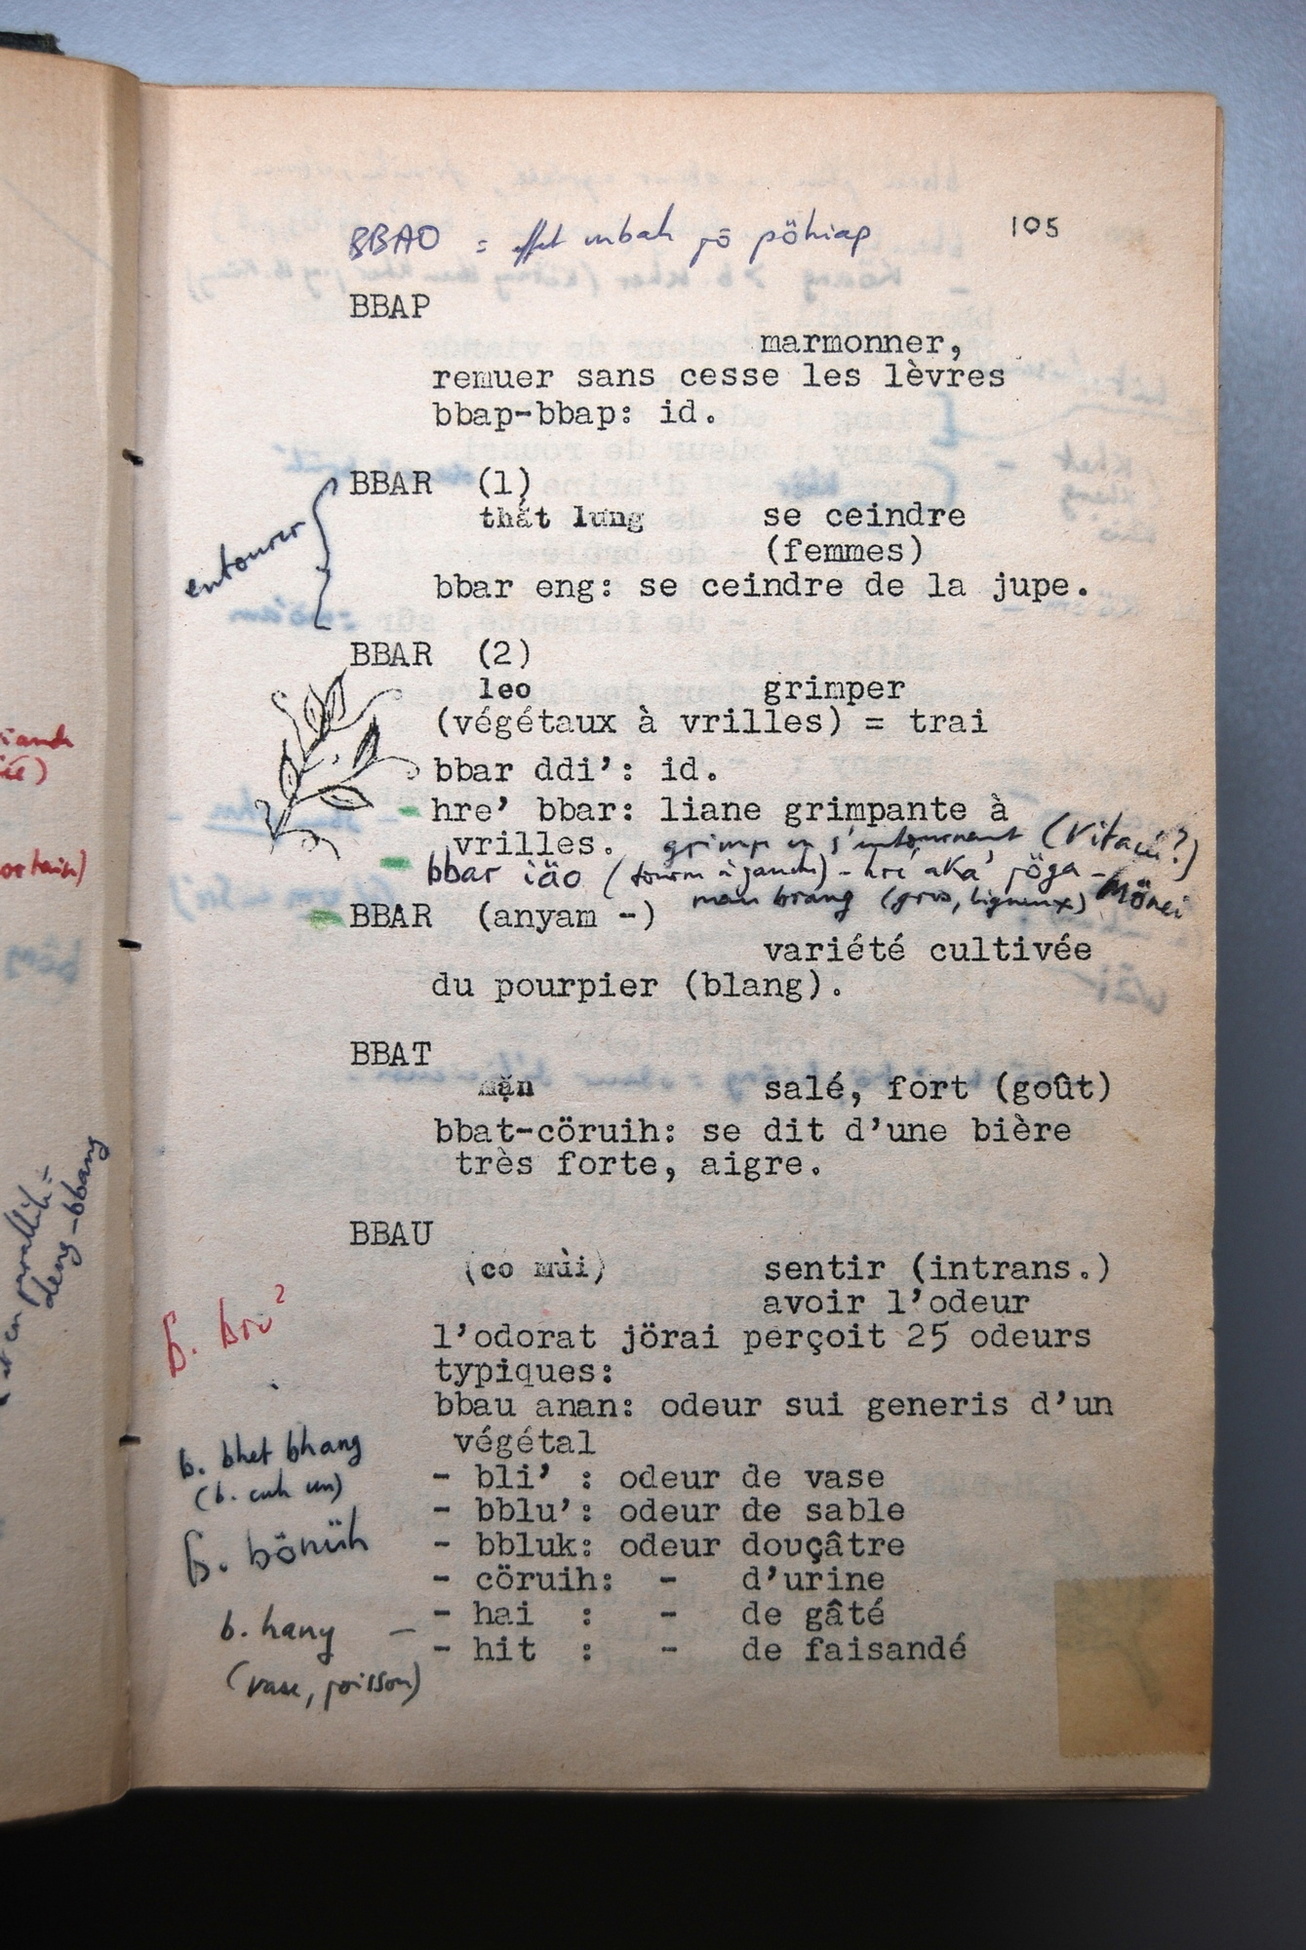 105
BBAO = effet mbah pö pöhiap
BBAP
marmonner,
remuer sans cesse les lèvres
bbap-bbap: id.
BBAR (1)
thắt lưng se ceindre
(femmes)
entourer
bbar eng: se ceindre de la jupe.
BBAR (2)
leo grimper
(végétaux à vrilles) = trai
bbar ddi’: id.
hre’ bbar: liane grimpante à
vrilles. grimp en s'entournant (Vitaci?)
bbar iäo (tourn à gauche) - hre' aka' pöga - Mönei
man brang (gros, ligneux)
BBAR (anyam -)
variété cultivée
du pourpier (blang).
BBAT
mặn salé, fort (goût)
bbat-cöruih: se dit d’une bière
très forte, aigre.
BBAU
(có mùi) sentir (intrans.)
avoir l’odeur
l’odorat jörai perçoit 25 odeurs
typiques:
bbau anan: odeur sui generis d’un
végétal
b. bhet bhang
- bli’ : odeur de vase
(b. cuh un)
- bblu’: odeur de sable
b. bönüh
- bbluk: odeur douçâtre
- cöruih: - d’urine
- hai : - de gâté
b. hany -
- hit : - de faisandé
(vase, poisson)
deng-bbang